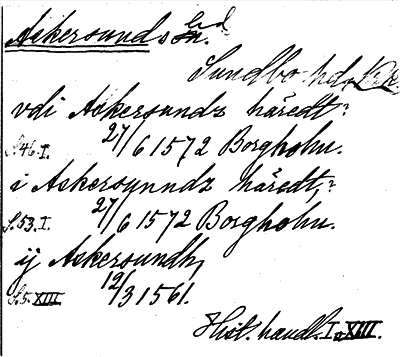 Askersunds hd
Sundbo hd,
vdi Askersundz häredt?
S. 46. I. 27/6 1572 Borgholm.
i Askersynndz häredt,?
S. 53. I. 27/6 1572 Borgholm.
ij Askersundh,
S. 5. XIII 12/3 1561.
Hist. handl. I o. XIII.